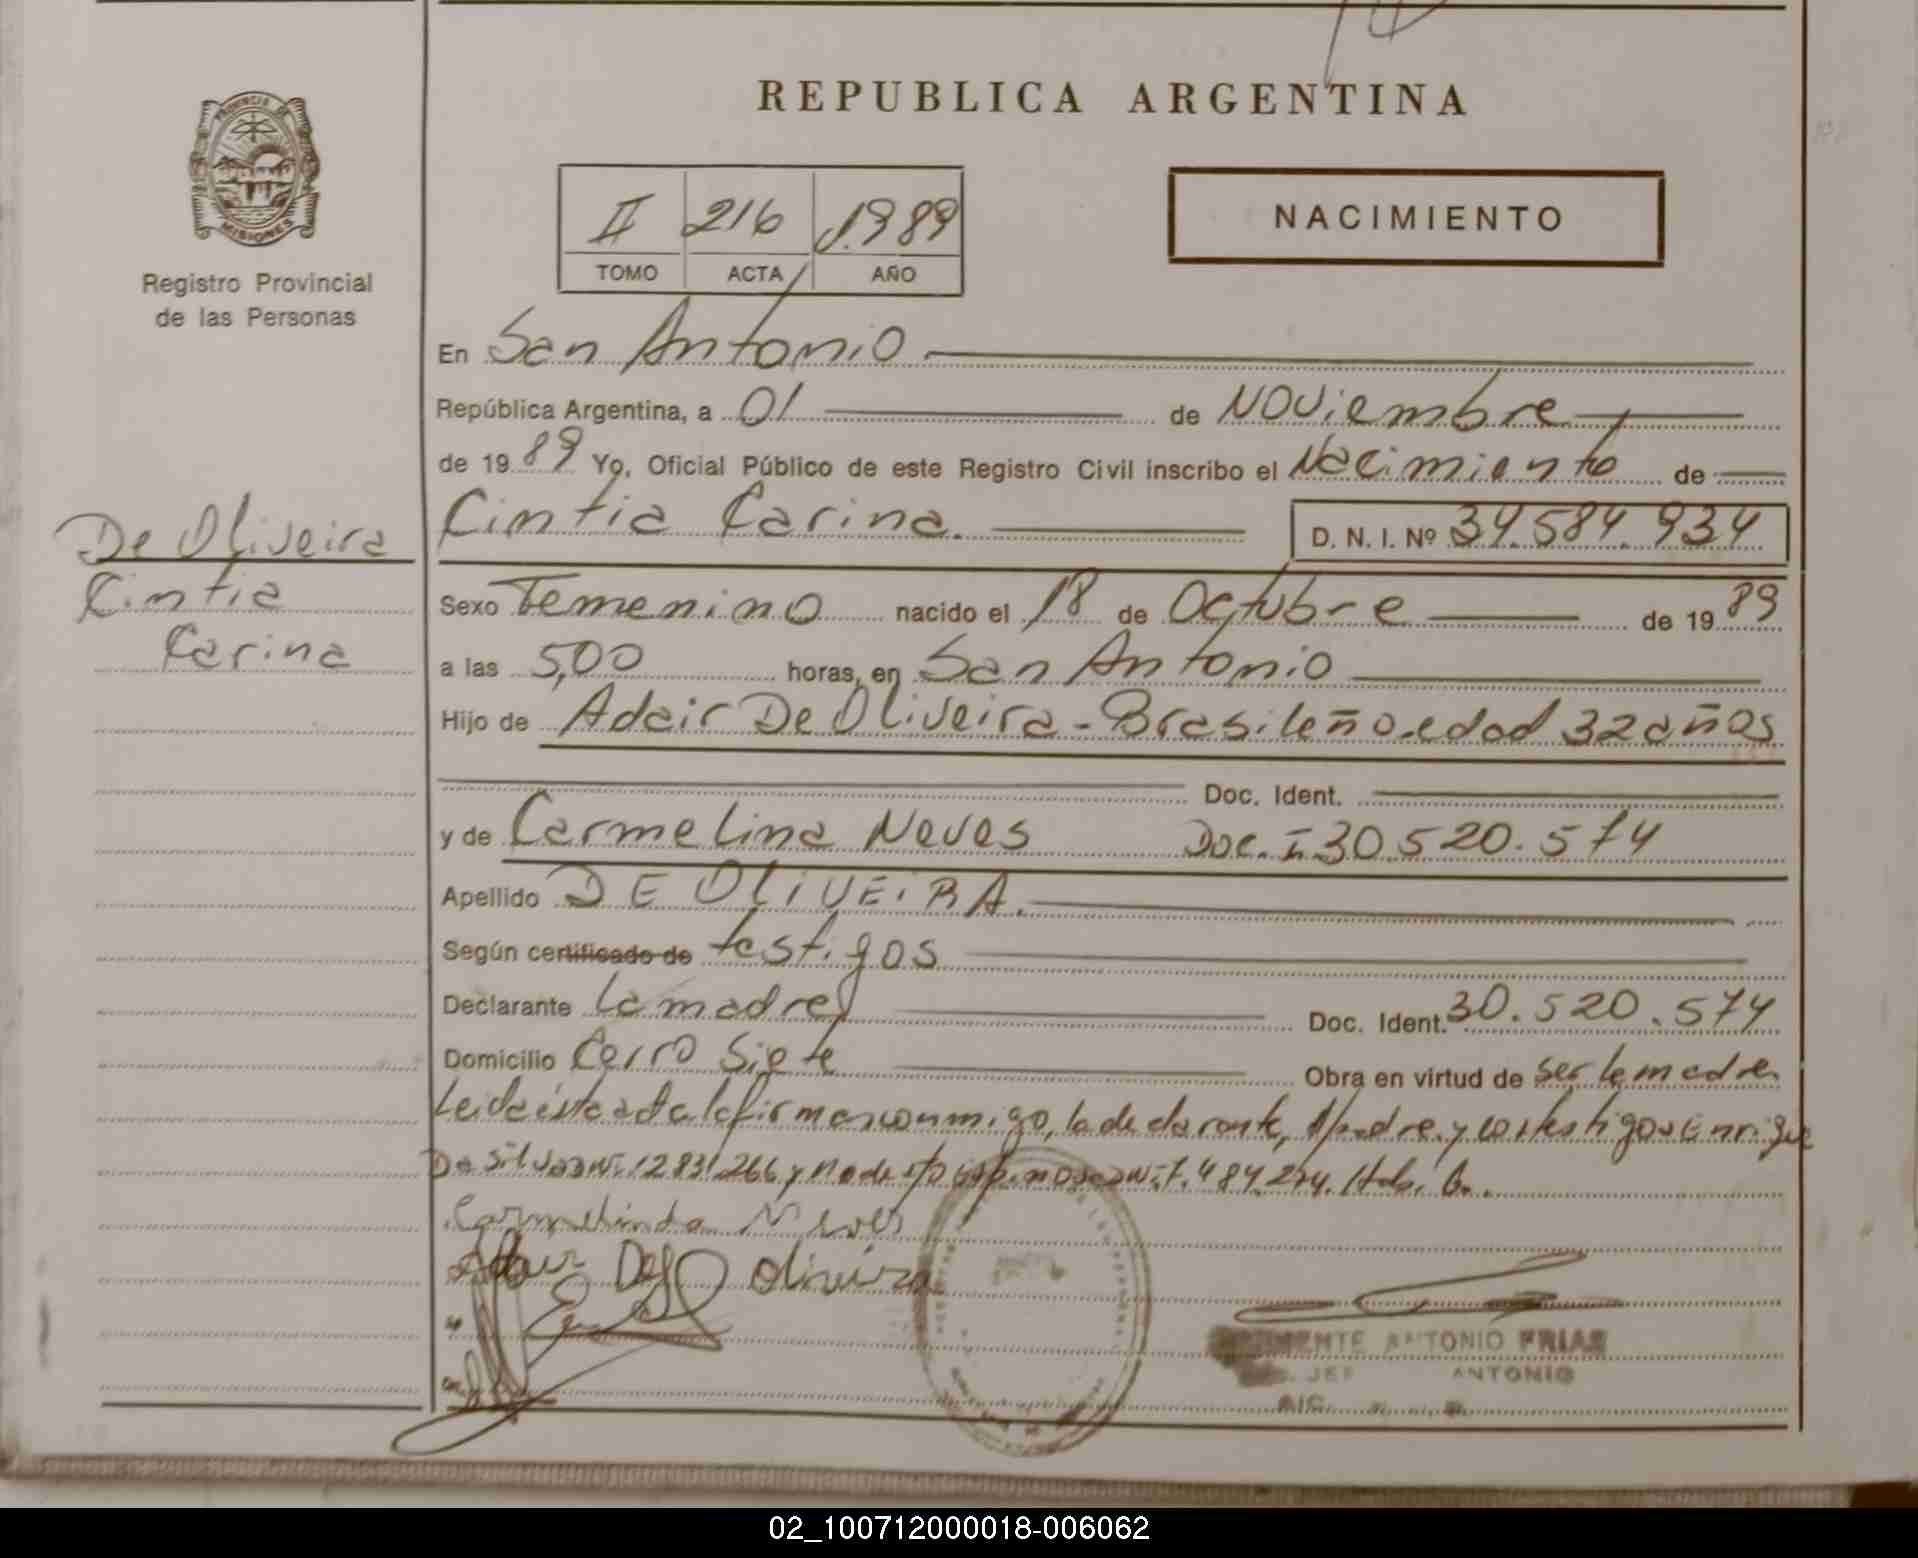 REPUBLICA ARGENTINA
PROVINCIA DE
MISIONES
Registro Provincial
de las Personas
II 216 1989
TOMO ACTA AÑO
NACIMIENTO
En San Antonio
República Argentina, a 01 de Noviembre
de 1989 Yo, Oficial Público de este Registro Civil inscribo el Nacimiento de
De Oliveira
Cintia
Carina
Cintia Carina.
D. N. I. Nº 34.584.934
Sexo Femenino nacido el 18 de Octubre de 1989
a las 5,00 horas, en San Antonio
Hijo de Adair De Oliveira - Brasileño.edad 32 años
Doc. Ident.
y de Carmelina Neves Doc. I. 30.520.574
Apellido DE OLIVEIRA.
Según certificado de testigos
Declarante La madre Doc. Ident. 30.520.574
Domicilio Cerro Siete Obra en virtud de ser la madre.
Leida ésta acta la firman conmigo, la declarante, el padre y los testigos Enrique
Da Silva DNI. 12.831.266 y Modesto Espinosa DNI. 7.484.274.
Carmelinda Neves
Adair De Oliveira
ANTONIO FRIAS
ANTONIO
02_100712000018-006062